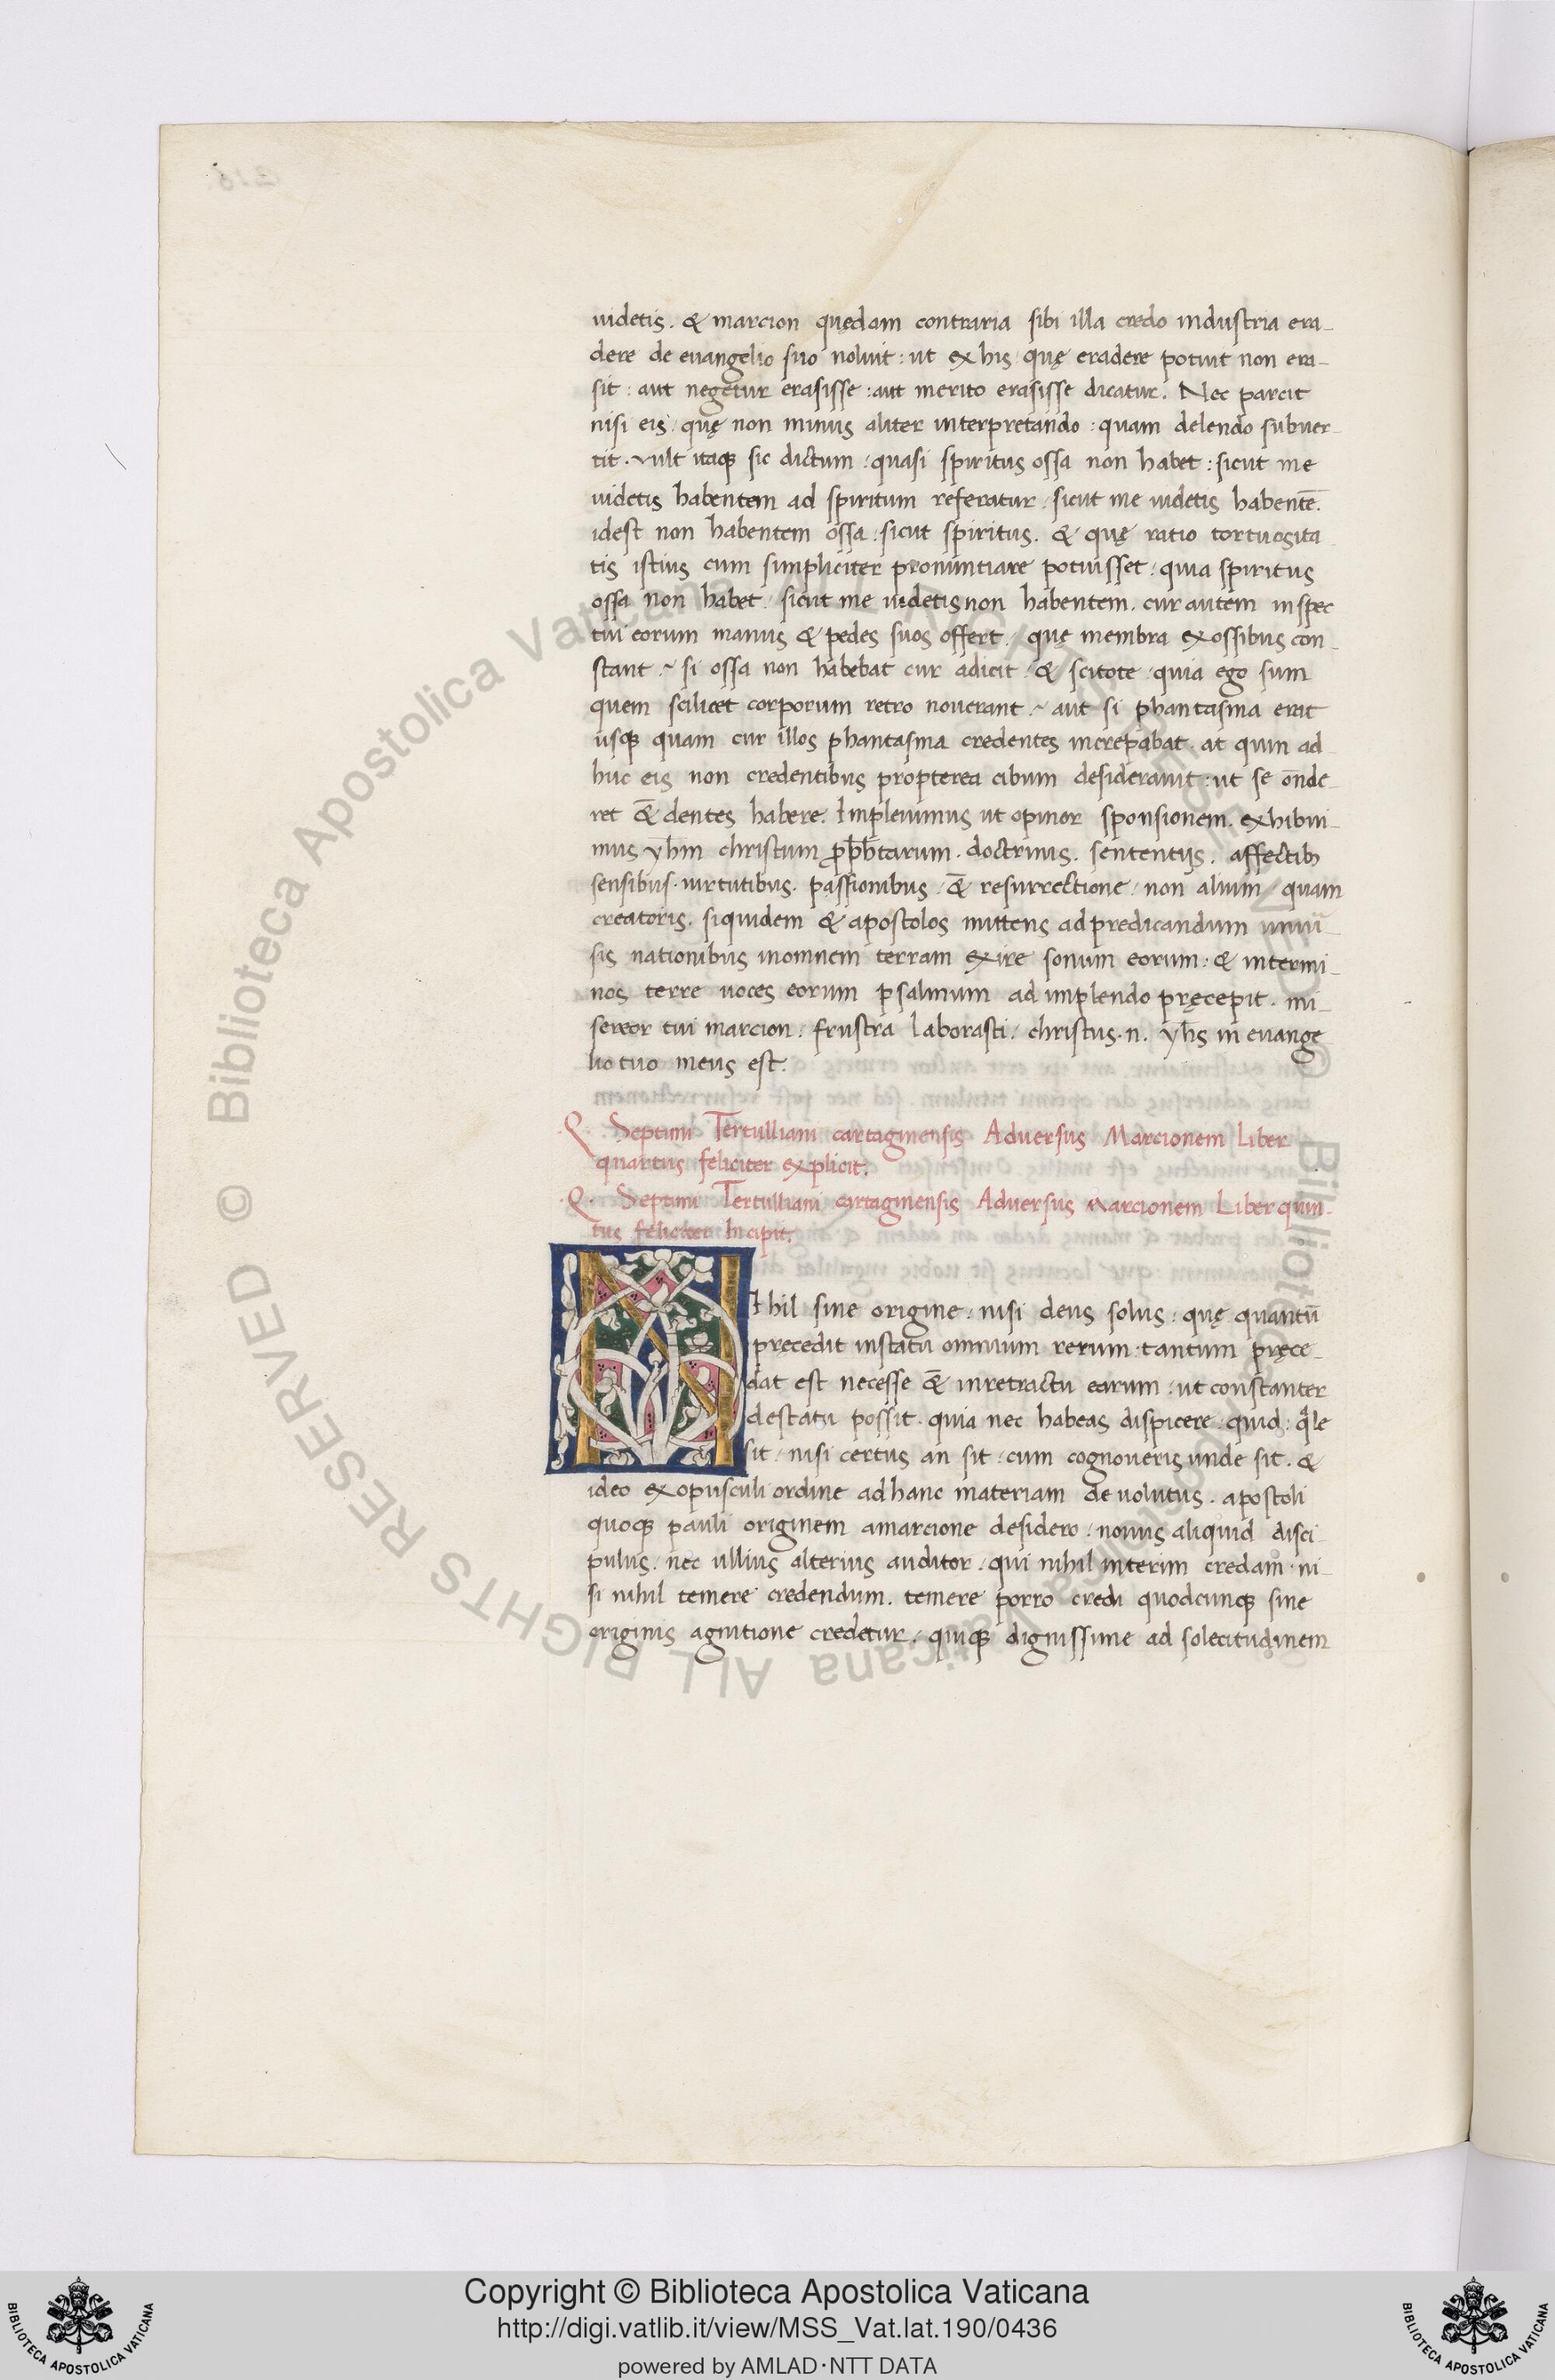 uidetis. & marcion quędam contraria sibi illa credo industria era-
dere de euangelio suo noluit: ut ex his quę eradere potuit non era-
sit: aut negetur erasisse: aut merito erasisse dicatur. Nec parcit
nisi eis quę non minus aliter interpretando: quam delendo subuer-
tit. vult itaq; sic dictum: quasi spiritus ossa non habet: sicut me
uidetis habentem ad spiritum referatur. sicut me uidetis habentē.
idest non habentem ossa: sicut spiritus. & quę ratio tortuosita-
tis istius cum simpliciter pronuntiare potuisset. quia spiritus
ossa non habet. sicut me uidetis non habentem. cur autem inspec
tui eorum manus & pedes suos offert. quę membra ex ossibus con-
stant.~ si ossa non habebat cur adicit. & scitote quia ego sum
quem scilicet corporum retro nouerant.~ aut si phantasma erat
usq; quam cur illos phantasma credentes increpabat. at quin ad
huc eis non credentibus propterea cibum desiderauit: ut se onde-
ret & dentes habere. Impleuimus ut opinor sponsionem. exhibui-
mus yhm christum prophetarum. doctrinis. sententijs. affectib;
sensibus. uirtutibus. passionibus. & resurrectione. non alium quam
creatoris. siquidem & apostolos mittens ad predicandum uniū-
sis nationibus inomnem terram exire sonum eorum: & intermi-
nos terre uoces eorum psalmum ad implendo pręcepit. mi-
sereor tui marcion. frustra laborasti. christus. n. yhs in euange
lio tuo meus est.
Q. Septimi Tertulliani cartaginensis Aduersus Marcionem Liber
quartus feliciter explicit.
.Q. Septimi Tertulliani cartaginensis Aduersus Marcionem Liber quin-
tus feliciter Incipit.
NIhil sine origine: nisi deus solus: quę quantū
pręcedit instatu omnium rerum. tantum pręce-
dat est necesse & inretractu earum: ut constanter
destatu possit. quia nec habeas dispicere quid: qle
sit. nisi certus an sit. cum cognoueris unde sit. &
ideo ex opusculi ordine ad hanc materiam deuolutus. apostoli
quoq; pauli originem amarcione desidero. nouus aliquid disci-
pulus. nec ullius alterius auditor. qui nihil interim credam. ni-
si nihil temere credendum. temere porro credi quodcunq; sine
originis agnitione credetur. quiq; dignissime ad solecitudinem
© Biblioteca Apostolica Vaticana ALL RIGHTS RESERVED
Copyright © Biblioteca Apostolica Vaticana
http://digi.vatlib.it/view/MSS_Vat.lat.190/0436
powered by AMLAD·NTT DATA
BIBLIOTECA APOSTOLICA VATICANA
BIBLIOTECA APOSTOLICA VATICANA